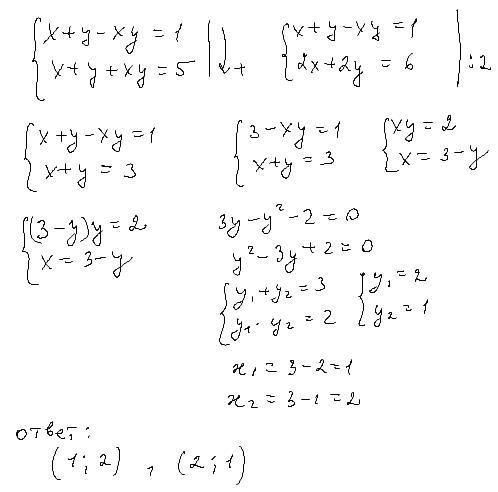 {x+y-xy=1 |↓+ {x+y-xy=1 |:2
{x+y+xy=5 {2x+2y=6
{x+y-xy=1 {3-xy=1 {xy=2
{x+y=3 {x+y=3 {x=3-y
{(3-y)y=2 3y-y²-2=0
{x=3-y y²-3y+2=0
{y₁+y₂=3 {y₁=2
{y₁·y₂=2 {y₂=1
x₁=3-2=1
x₂=3-1=2
ответ:
(1;2), (2;1)